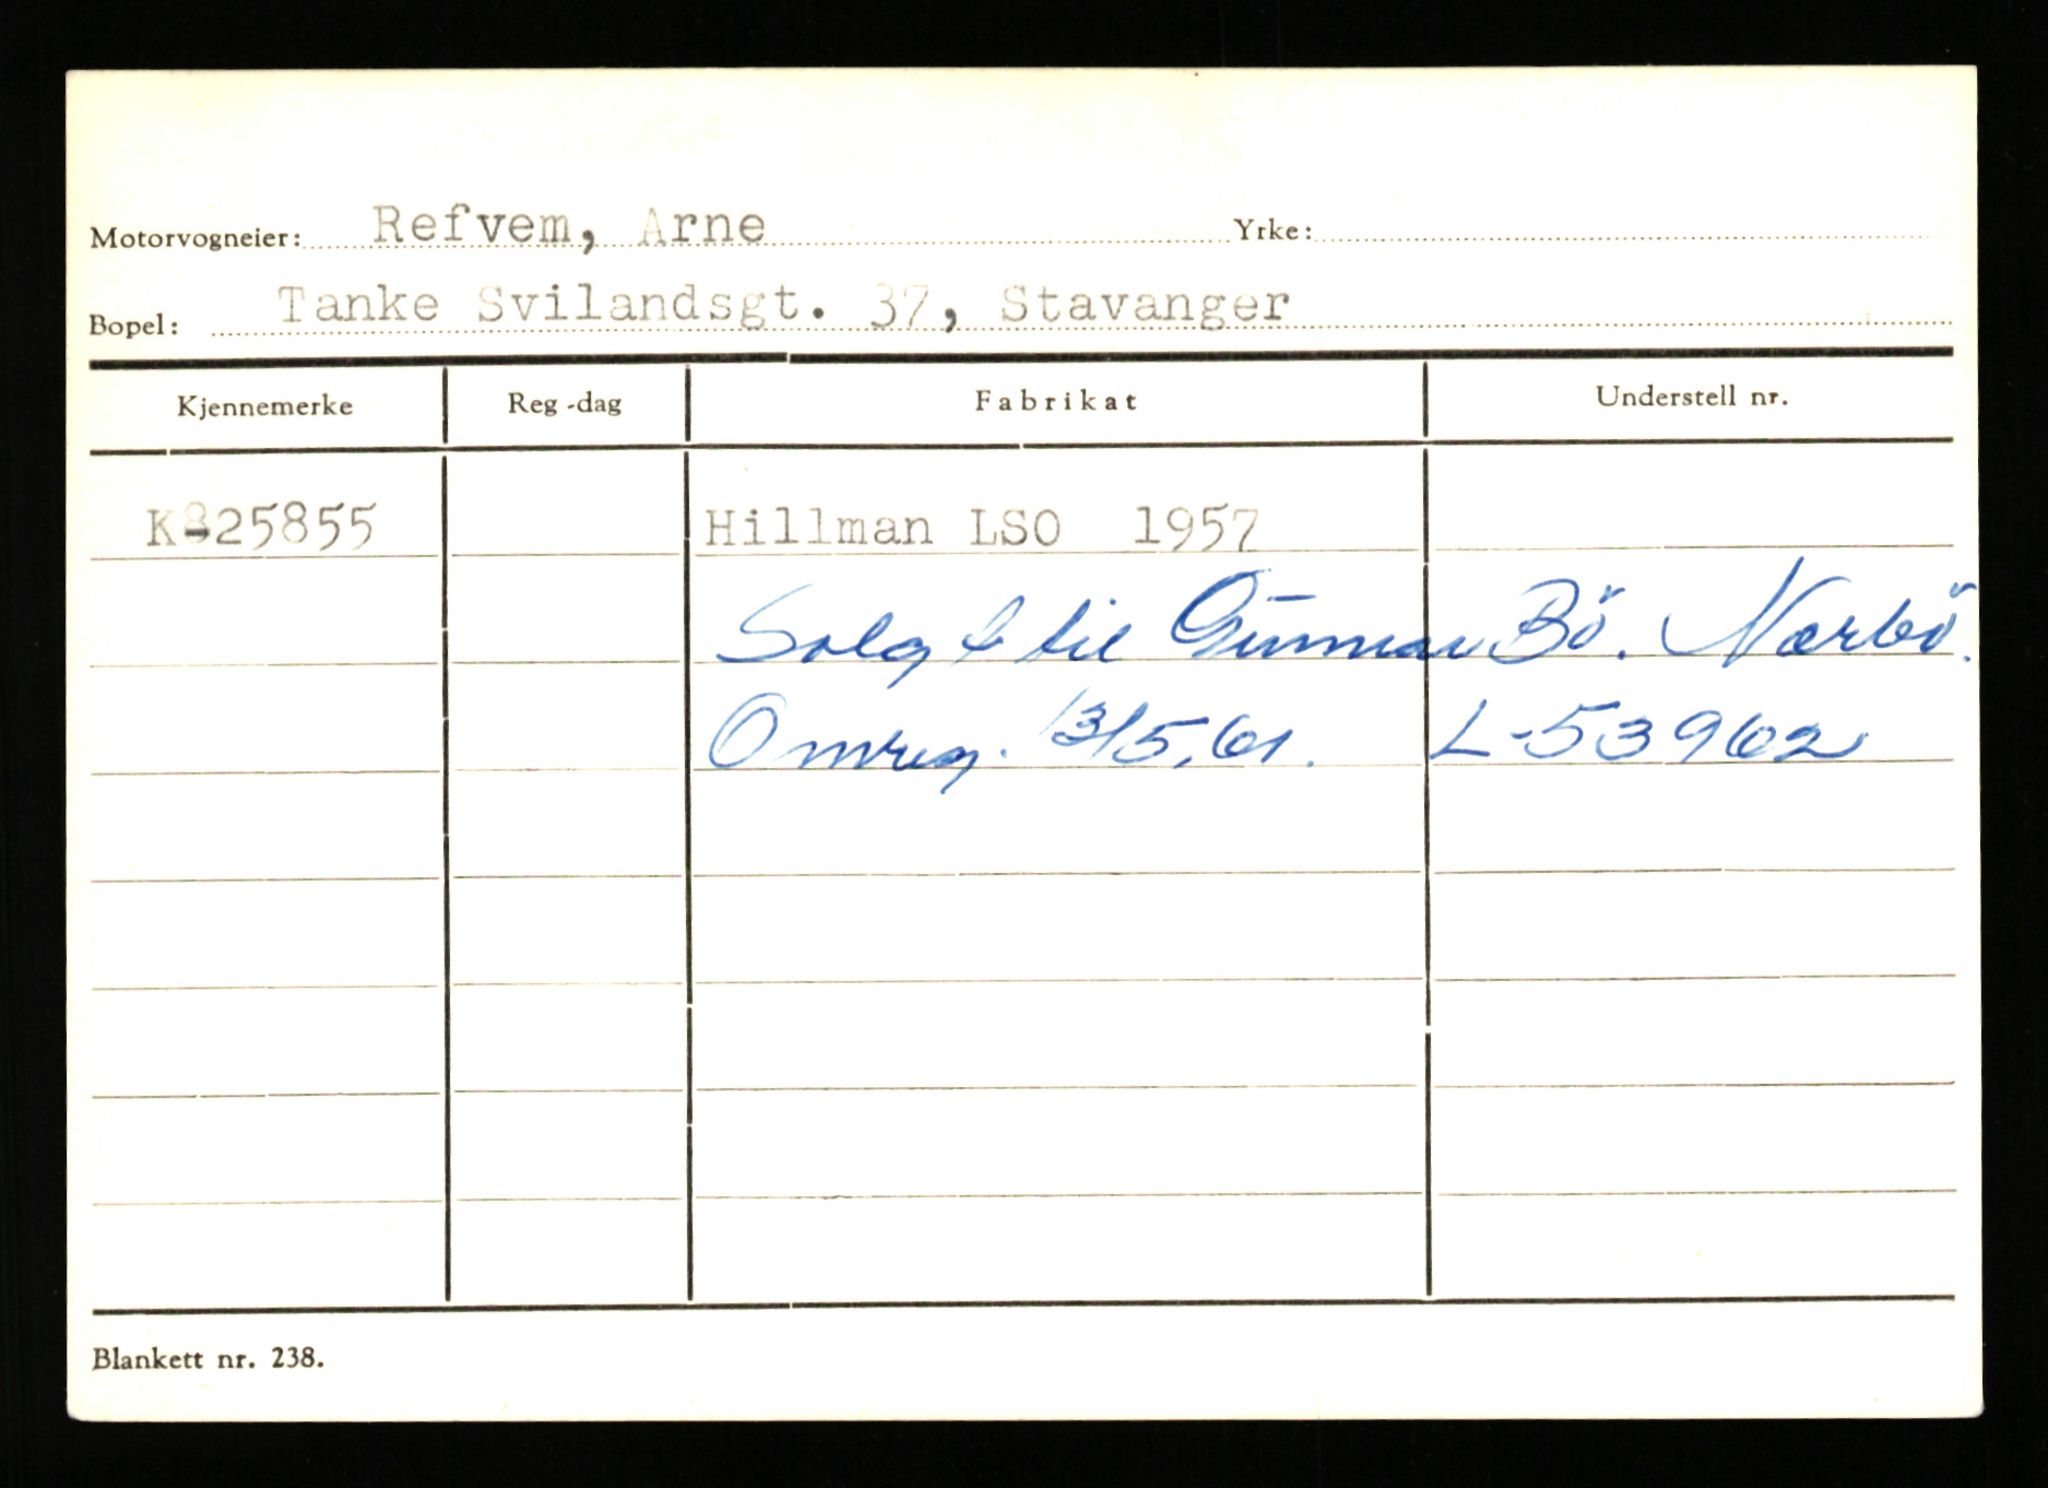 Motorvogneier: Refvem, Arne Yrke:
Bopel: Tanke Svilandsgt. 37, Stavanger
Kjennemerke Reg-dag Fabrikat Understell nr.
K-25855 Hillman LSO 1957
Solgt til Gunnar Bö. Nærbö.
Omreg. 13/5.61. L-53962
Blankett nr. 238.